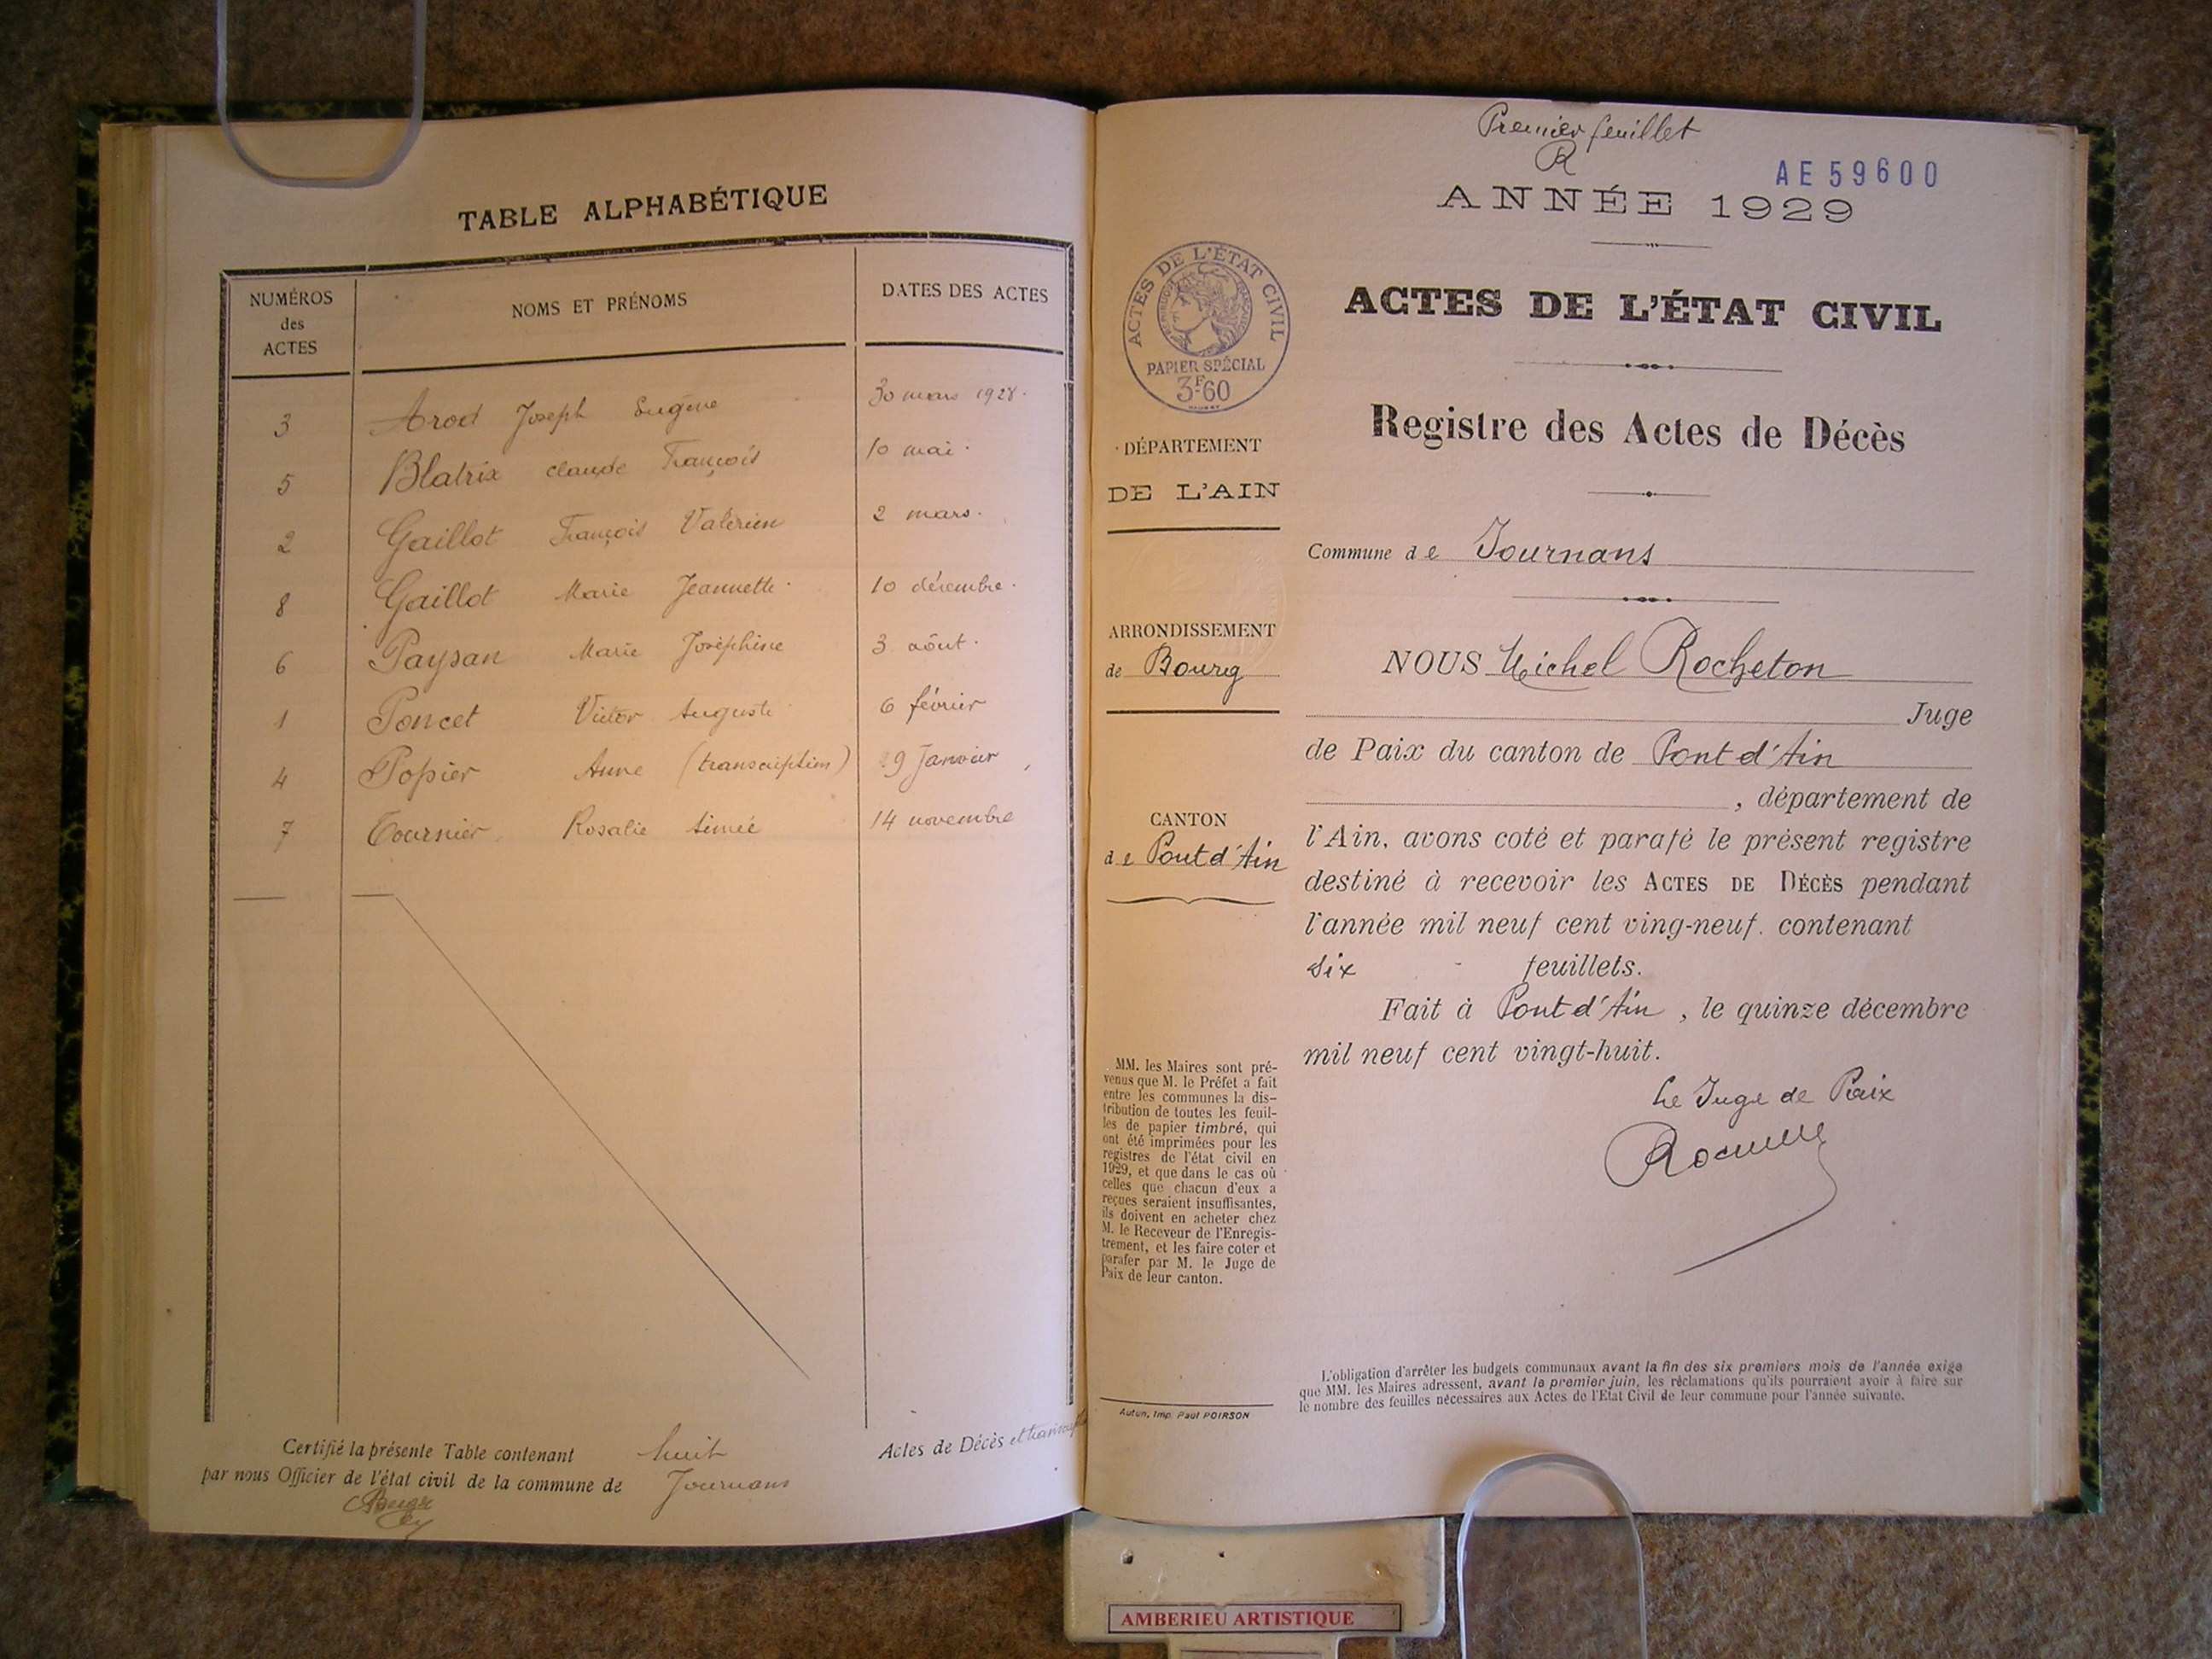 TABLE ALPHABÉTIQUE
NUMÉROS des ACTES
NOMS ET PRÉNOMS
DATES DES ACTES
3 Arod Joseph Eugène 30 mars 1928.
5 Blatrix claude François 10 mai.
2 Gaillot François Valérien 2 mars.
8 Gaillot Marie Jeannette. 10 décembre.
6 Paysan Marie Joséphine 3 aôut.
1 Poncet Victor Auguste 6 février
4 Popier Anne (transcription) 9 Janvier
7 Tournier Rosalie Aimée 14 novembre
Certifié la présente Table contenant huit Actes de Décès et
par nous Officier de l'état civil de la commune de Journans
Premier feuillet
R
AE 59600
ANNÉE 1929
ACTES DE L'ÉTAT CIVIL
Registre des Actes de Décès
Commune de Journans
NOUS Michel Rocheton
Juge
de Paix du canton de Pont d'Ain
, département de
l'Ain, avons coté et parafé le présent registre
destiné à recevoir les ACTES DE DÉCÈS pendant
l'année mil neuf cent ving-neuf. contenant
six feuillets.
Fait à Pont d'Ain, le quinze décembre
mil neuf cent vingt-huit.
Le Juge de Paix
ACTES DE L'ÉTAT CIVIL
PAPIER SPÉCIAL
3F60
DÉPARTEMENT
DE L'AIN
ARRONDISSEMENT
de Bourg
CANTON
de Pont d'Ain
MM. les Maires sont pré-
venus que M. le Préfet a fait
entre les communes la dis-
tribution de toutes les feuil-
les de papier timbré, qui
ont été imprimées pour les
registres de l'état civil en
1929, et que dans le cas où
celles que chacun d'eux a
reçues seraient insuffisantes,
ils doivent en acheter chez
M. le Receveur de l'Enregis-
trement, et les faire coter et
parafer par M. le Juge de
Paix de leur canton.
Autun, Imp. Paul POIRSON
L'obligation d'arrêter les budgets communaux avant la fin des six premiers mois de l'année exige
que MM. les Maires adressent, avant le premier juin, les réclamations qu'ils pourraient avoir à faire sur
le nombre des feuilles nécessaires aux Actes de l'Etat Civil de leur commune pour l'année suivante.
AMBERIEU ARTISTIQUE